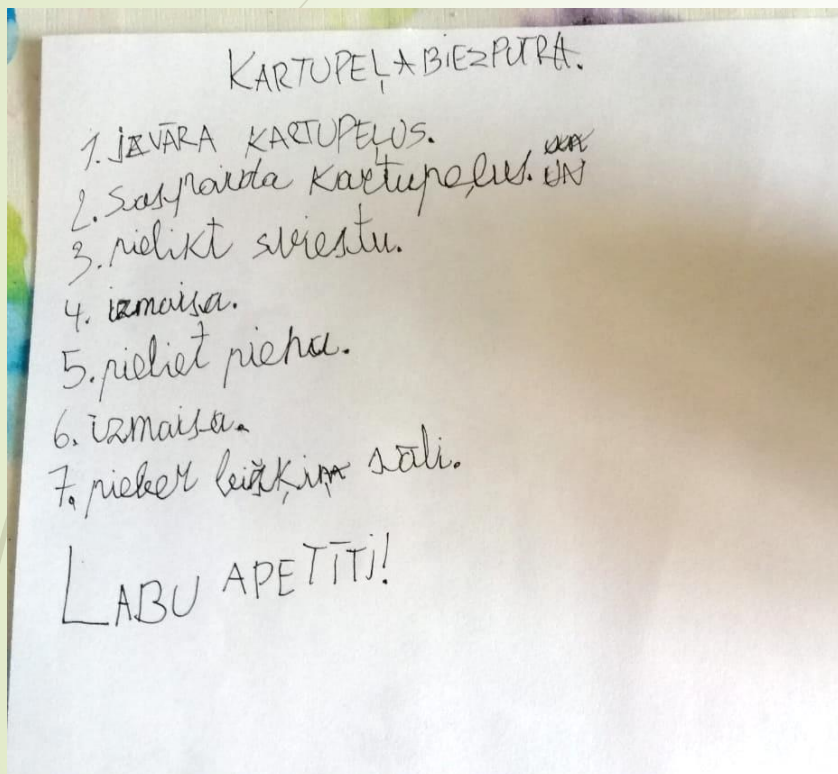 KARTUPEĻA BIEZPUTRA.
1. IZVĀRA KARTUPEĻUS.
2. Saspaida kartupeļus. UN
3. pielikt sviestu.
4. izmaisa.
5. pieliet piena.
6. izmaisa.
7. pieber sāli.
LABU APETĪTI!